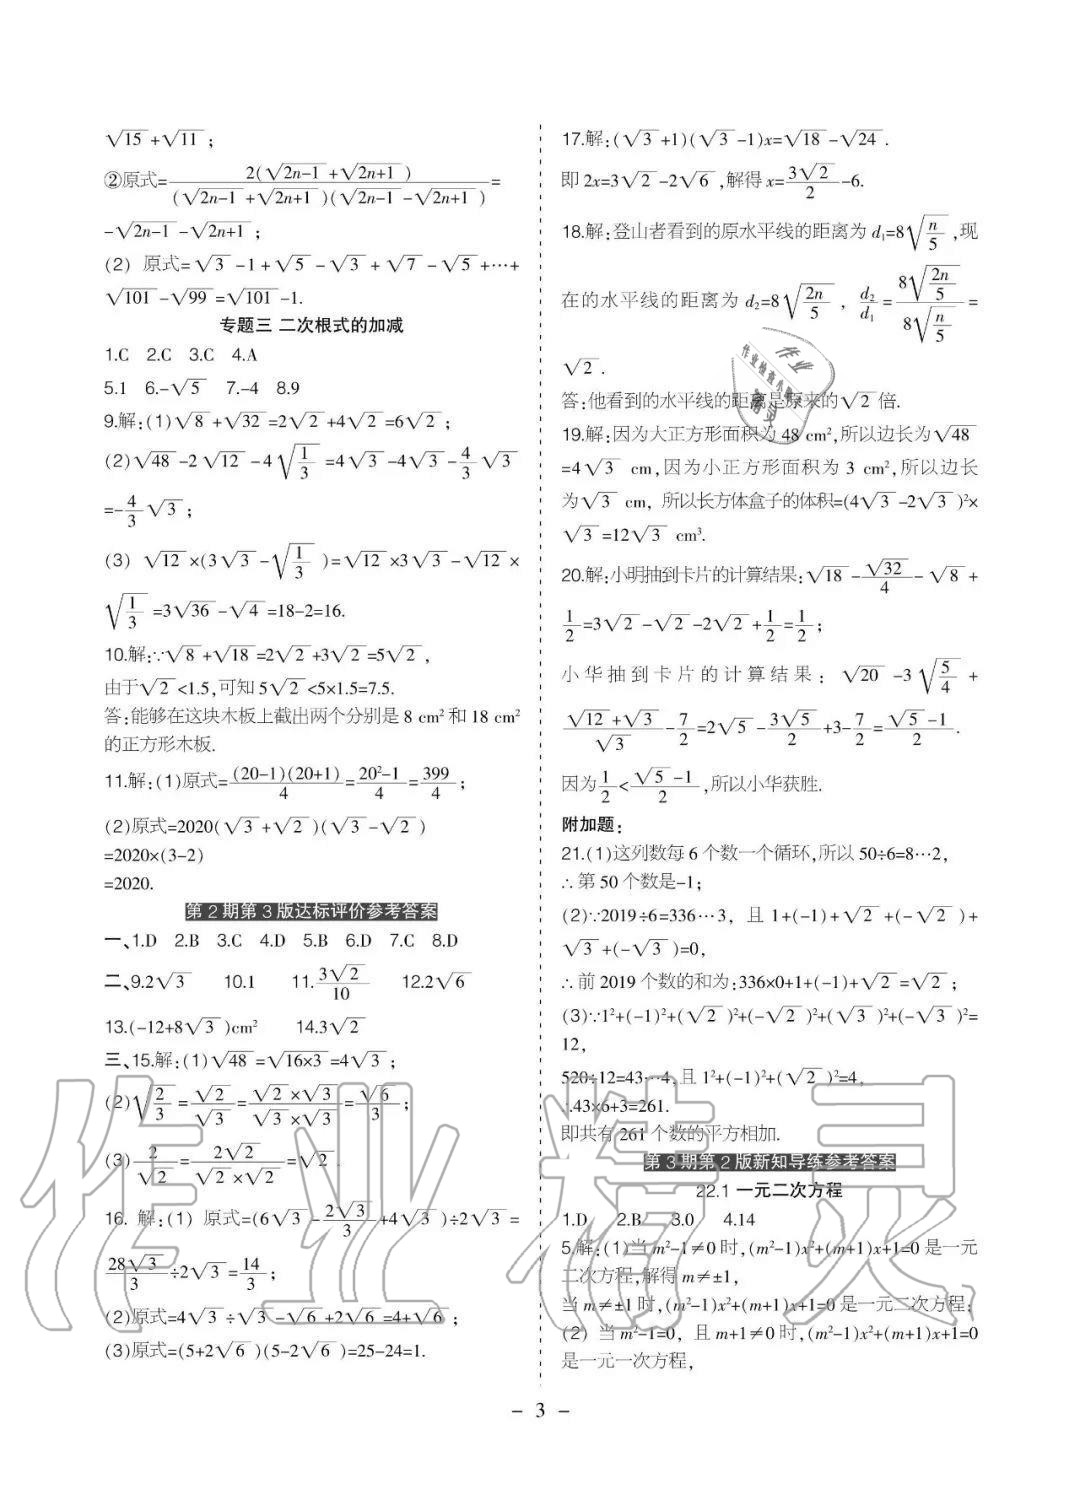 √15+√11；
②原式=2(√2n-1+√2n+1)/(√2n-1+√2n+1)(√2n-1-√2n+1)=
-√2n-1-√2n+1；
(2) 原式=√3-1+√5-√3+√7-√5+…+
√101-√99=√101-1.
专题三 二次根式的加减
1.C 2.C 3.C 4.A
5.1 6.-√5 7.-4 8.9
9.解:(1)√8+√32=2√2+4√2=6√2；
(2)√48-2√12-4√(1/3)=4√3-4√3-4/3√3
=-4/3√3；
(3) √12×(3√3-√(1/3))=√12×3√3-√12×
√(1/3)=3√36-√4=18-2=16.
10.解:∵√8+√18=2√2+3√2=5√2，
由于√2<1.5,可知5√2<5×1.5=7.5.
答:能够在这块木板上截出两个分别是8 cm²和18 cm²
的正方形木板.
11.解:(1)原式=(20-1)(20+1)/4=20²-1/4=399/4；
(2)原式=2020(√3+√2)(√3-√2)
=2020×(3-2)
=2020.
第2期第3版达标评价参考答案
一、1.D 2.B 3.C 4.D 5.B 6.D 7.C 8.D
二、9.2√3 10.1 11.3√2/10 12.2√6
13.(-12+8√3)cm² 14.3√2
三、15.解:(1)√48=√16×3=4√3；
(2)√(2/3)=√2/√3=√2×√3/√3×√3=√6/3；
(3)2/√2=2√2/√2×√2=√2.
16. 解:(1) 原式=(6√3-2√3/3+4√3)÷2√3=
28√3/3÷2√3=14/3；
(2)原式=4√3÷√3-√6+2√6=4+√6；
(3)原式=(5+2√6)(5-2√6)=25-24=1.
17.解:(√3+1)(√3-1)x=√18-√24.
即2x=3√2-2√6,解得x=3√2/2-6.
18.解:登山者看到的原水平线的距离为d₁=8√(n/5),现
在的水平线的距离为d₂=8√(2n/5)，d₂/d₁=8√(2n/5)/8√(n/5)=
√2.
答:他看到的水平线的距离是原来的√2倍.
19.解:因为大正方形面积为48 cm²,所以边长为√48
=4√3 cm,因为小正方形面积为3 cm²,所以边长
为√3 cm，所以长方体盒子的体积=(4√3-2√3)²×
√3=12√3 cm³.
20.解:小明抽到卡片的计算结果:√18-√32/4-√8+
1/2=3√2-√2-2√2+1/2=1/2；
小华抽到卡片的计算结果：√20-3√(5/4)+
√12+√3/√3-7/2=2√5-3√5/2+3-7/2=√5-1/2.
因为1/2<√5-1/2,所以小华获胜.
附加题：
21.(1)这列数每6个数一个循环,所以50÷6=8…2，
∴第50个数是-1；
(2)∵2019÷6=336…3，且1+(-1)+√2+(-√2)+
√3+(-√3)=0，
∴前2019个数的和为:336×0+1+(-1)+√2=√2；
(3)∵1²+(-1)²+(√2)²+(-√2)²+(√3)²+(-√3)²=
12，
520÷12=43…4,且1²+(-1)²+(√2)²=4，
∴43×6+3=261.
即共有261个数的平方相加.
第3期第2版新知导练参考答案
22.1 一元二次方程
1.D 2.B 3.0 4.14
5.解:(1)当m²-1≠0时,(m²-1)x²+(m+1)x+1=0是一元
二次方程,解得m≠±1，
当m≠±1时,(m²-1)x²+(m+1)x+1=0是一元二次方程；
(2) 当m²-1=0，且m+1≠0时,(m²-1)x²+(m+1)x+1=0
是一元一次方程，
- 3 -
作业精灵
作业
作业检查小帮手
精灵